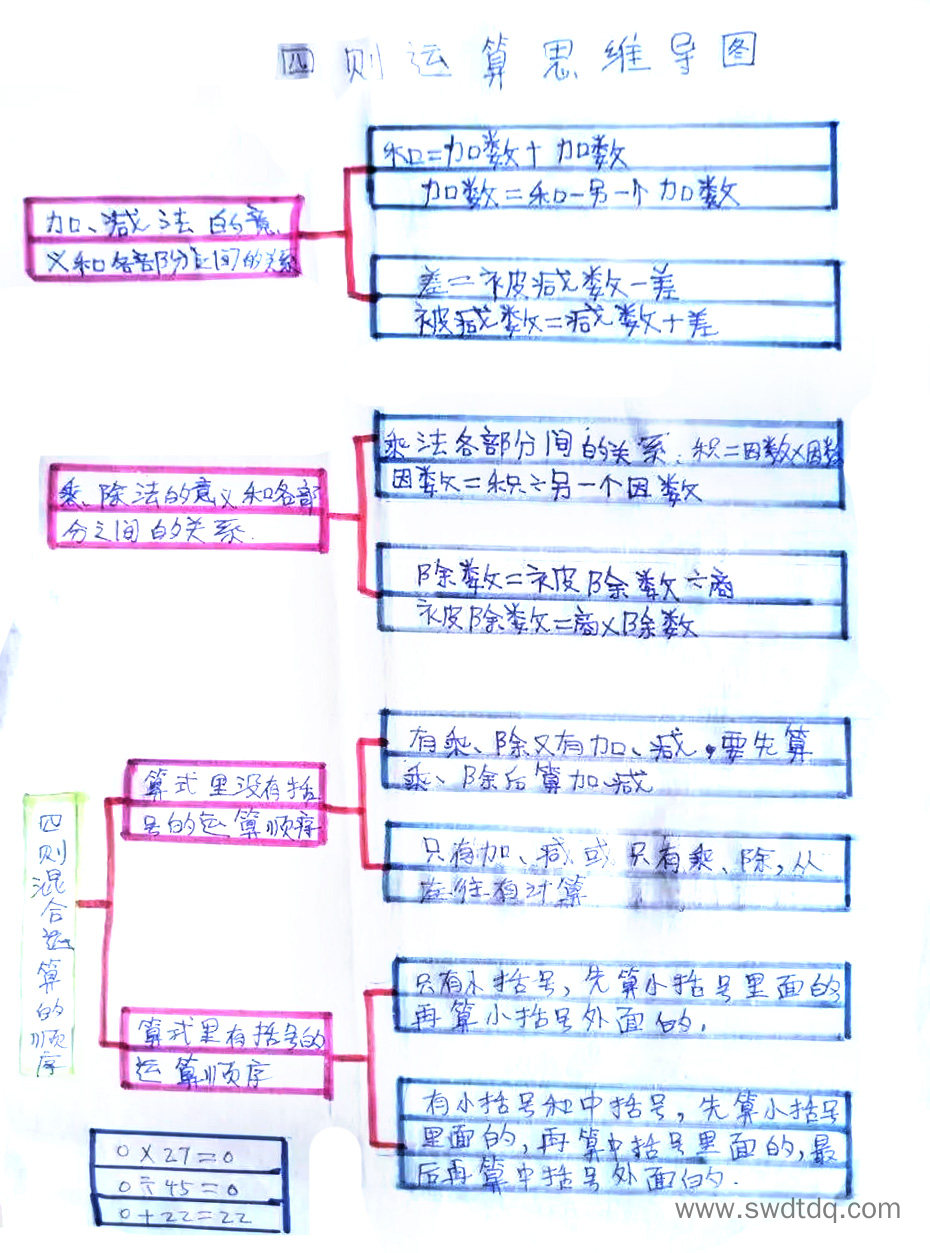 四则运算思维导图
和=加数+加数
加数=和-另一个加数
加、减法的意
义和各部分之间的关系
差=被减数-差
被减数=减数+差
乘法各部分间的关系:积=因数×因数
因数=积÷另一个因数
乘、除法的意义和各部
分之间的关系.
除数=被除数÷商
被除数=商×除数
有乘、除又有加、减,要先算
乘、除后算加、减
算式里没有括
号的运算顺序
只有加、减或只有乘、除,从
左往右计算
四则混合运算的顺序
只有小括号,先算小括号里面的
再算小括号外面的.
算式里有括号的
运算顺序
有小括号和中括号,先算小括号
里面的,再算中括号里面的,最
后再算中括号外面的.
0×27=0
0÷45=0
0+22=22
www.swdtdq.com